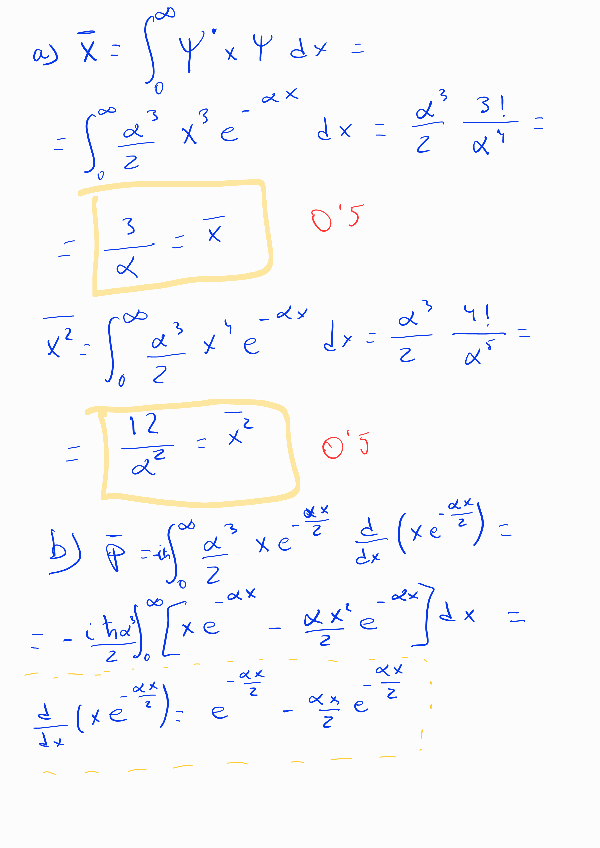 a) x̄ = ∫₀^∞ ψ* x ψ dx =
= ∫₀^∞ α³/2 x³ e^(-αx) dx = α³/2 3!/α⁴ =
= 3/α = x̄ 0'5
x̄² = ∫₀^∞ α³/2 x⁴ e^(-αx) dx = α³/2 4!/α⁵ =
= 12/α² = x̄² 0'5
b) p̄ = -iħ∫₀^∞ α³/2 x e^(-αx/2) d/dx (x e^(-αx/2)) =
= - iħα³/2 ∫₀^∞ [x e^(-αx) - αx²/2 e^(-αx)] dx =
d/dx (x e^(-αx/2)) = e^(-αx/2) - αx/2 e^(-αx/2)